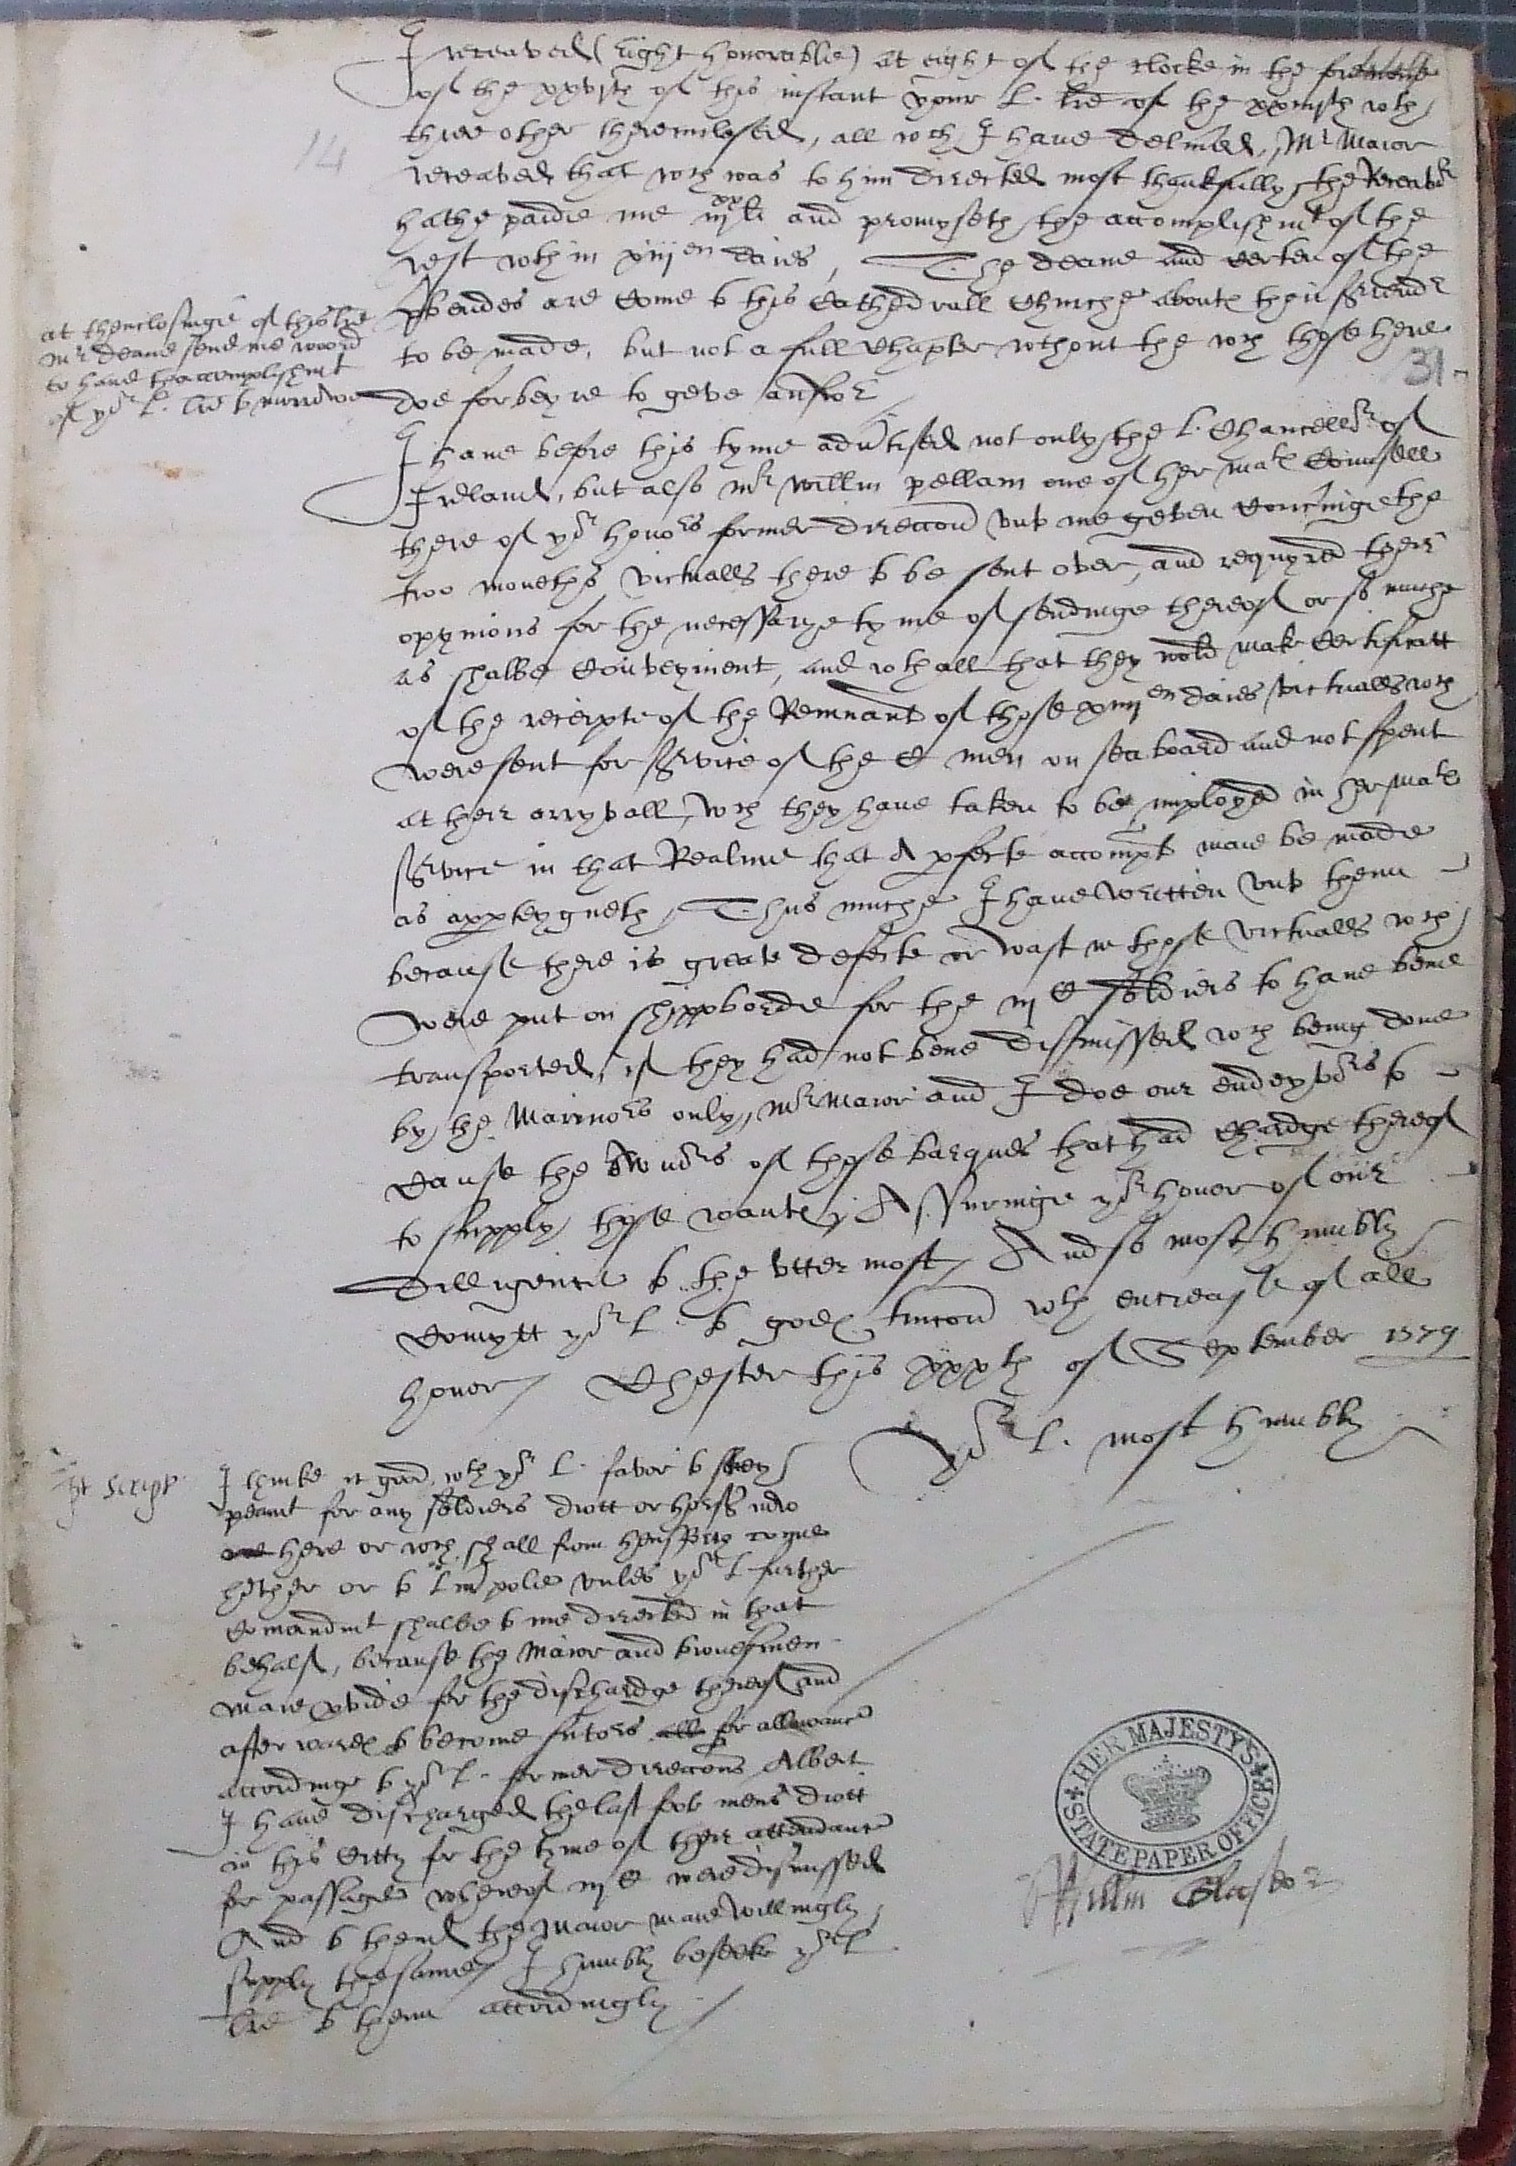 I receaved (right honorable) at eight of the clocke in the forenone
of the xxvjth of this instant your L. lre of the xxiiijth wth
three other thereinclosed, all wch I have delivred, Mr Maior
receaved that wch was to him directed most thankfully, the Receavor
14
hathe paide me iijxxli and promyseth the accomplishmt of the
rest wthin xiiijen daies, The deane and certen of the
pbendes are come to this Cathedrall Churche aboute their
to be made, but not a full Chapter wthout the wch those here
31
doe forbeare to geve answr
at thenclosinge of this lre
Mr deane send me word
to have thaccomplishmt
of yor L. lre to
I have before this tyme advtised not only the L. Chancellor of
Ireland, but also Mr Willm pellam one of her Mats Counsell
there of yor honors former direccon unto me geven concninge the
two moneths victualls there to be sent over, and requyred their
opynions for the necessarye tyme of sendinge thereof or so muche
as shalbe convenyent, and wthall that they wold make Certificatt
of the receipte of the Remnant of those xiiijen daies victualls wch
were sent for service of the C men on sea board and not spent
at their arryvall, wch they have taken to be imployed in her Mats
service in that Realme that A pfecte accompte maie be made
as apperteyneth, Thus muche I have written unto them
because there is greate defecte or wast in those victualls wch
were put on shippborde for the iij C soldiers to have bene
transported, if they had not bene dismissed wch being done
by the Marinors only, Mr Maior and I doe our endeyvors to
cause the Ownors of those barques that had chardge thereof
to supply those wantes, Assuringe yor honor of our
dilligence to the uttermost, And so most humbly
comytt yor L. to gods tuicon wth encrease of all
honor, Chester this xxxth of September 1579
yor L. most humbly
pt Script
I thinke it good, wth yor L. favor to stey
peamt for any soldiers diott or horses now
here or wch shall from hensforth come
hether or to Liverpole unles yor L further
comandmt shalbe to me directed in that
behalf, because the Maior and townesmen
maie pvide for the dischardge thereof and
afterwards to become sutors for allowance
accordinge to yor L. former direccons Albeit
I have discharged the last foote mens diott
in this Citty for the tyme of their attendance
for passage whereof iij C were dismissed
And to thend the Maior maie willingly
supply the same, I humbly beseeke yor L
lre to them accordingly
HER MAJESTY'S
STATE PAPER OFFICE
Willm Glaseor